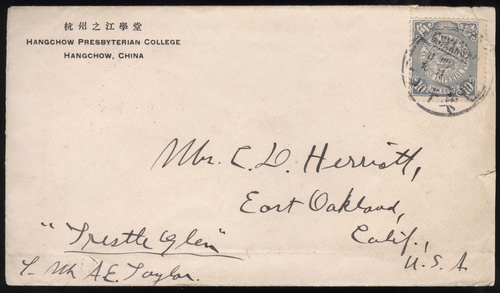 杭州之江學堂
HANGCHOW PRESBYTERIAN COLLEGE
HANGCHOW, CHINA
10
10
Mr. C. D. Herriott,
East Oakland,
Calif.,
U. S. A
"Trestle Glen"
A. E. Taylor.